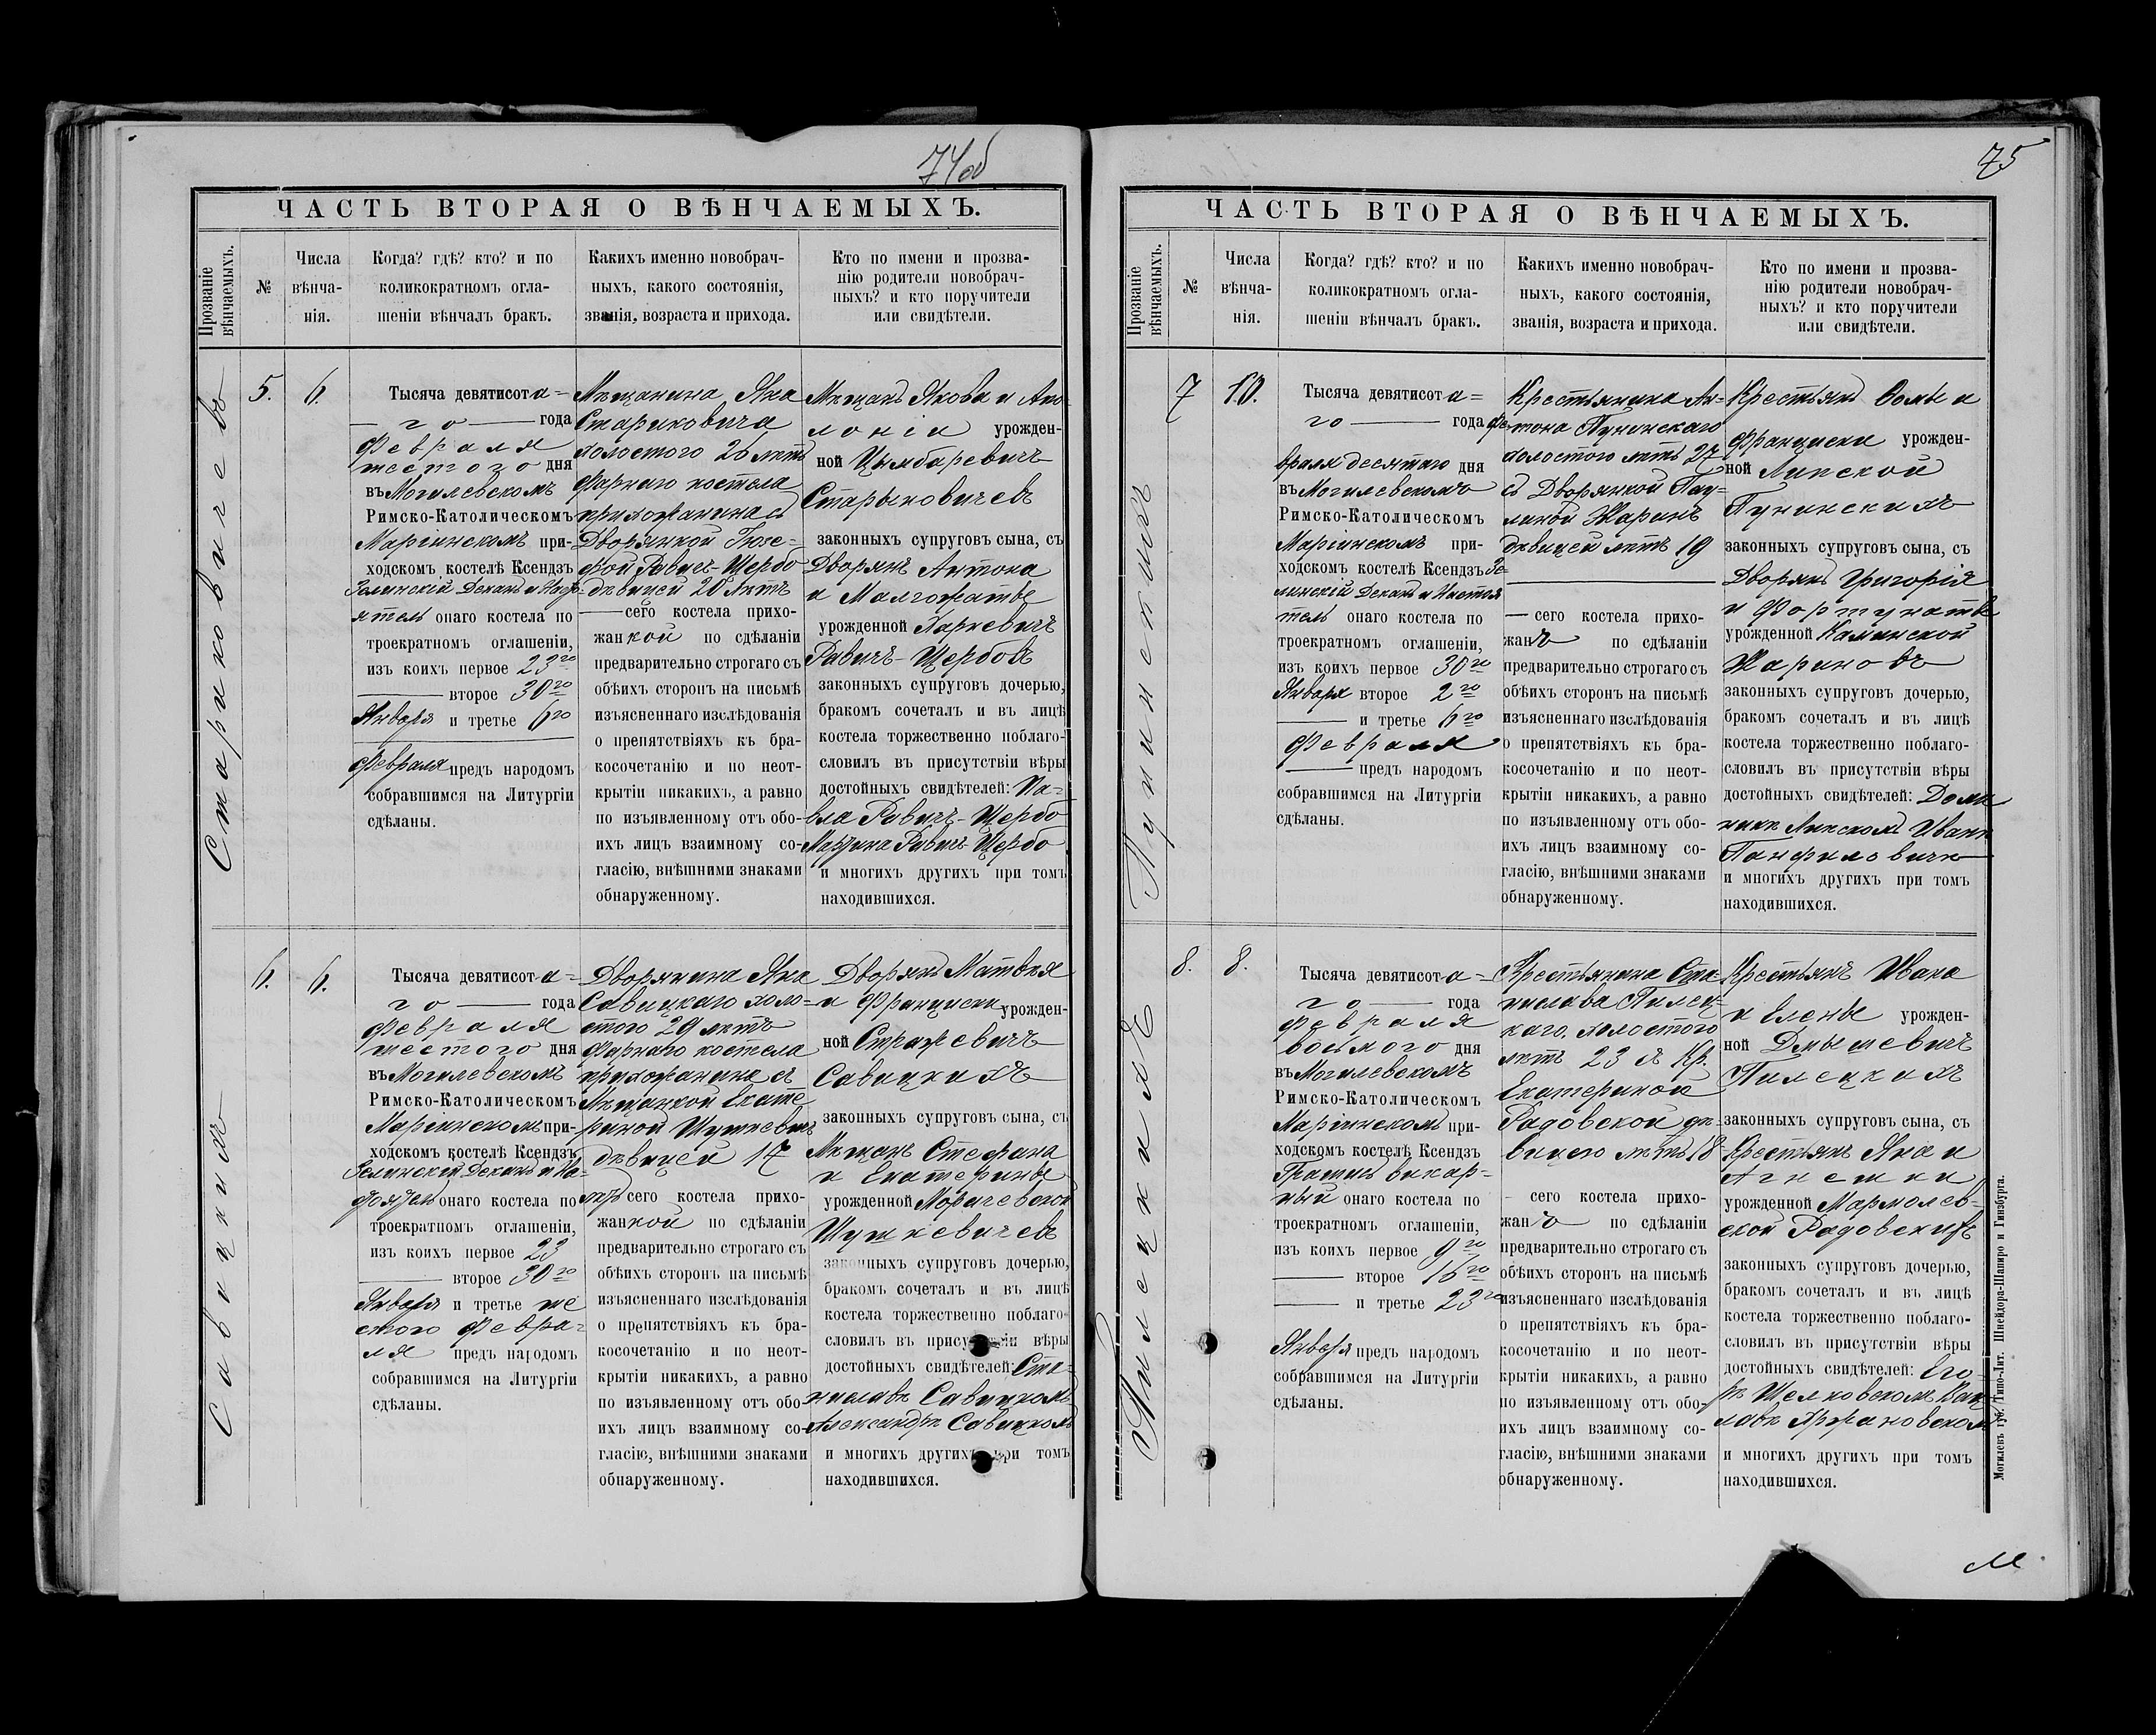 74об
ЧАСТЬ ВТОРАЯ О ВѢНЧАЕМЫХЪ.
Прозваніе вѣнчаемыхъ.
№
Числа вѣнча-
нія.
Когда? гдѣ? кто? и по
коликократномъ огла-
шеніи вѣнчалъ бракъ.
Какихъ именно новобрач-
ныхъ, какого состоянія,
званія, возраста и прихода.
Кто по имени и прозва-
нію родители новобрач-
ныхъ? и кто поручители
или свидѣтели.
Стариковичевъ
5.
6.
Тысяча девятисота=
го года
Февраля
шестого дня
въ Могилевскомъ
Римско-Католическомъ
Маріинскомъ при-
ходскомъ костелѣ Ксендзъ
Зелинскій Деканъ и Насто-
ятель онаго костела по
троекратномъ оглашеніи,
изъ коихъ первое 23го
второе 30го
Января и третье 6го
Февраля предъ народомъ
собравшимся на Литургіи
сдѣланы.
Мѣщанина Яна
Стариковича
холостого 26 лѣтъ
фарнаго костела
прихожанина съ
Дворянкой Іозе-
фой Равичъ-Щербо
дѣвицей 20 лѣтъ
сего костела прихо-
жанкой по сдѣланіи
предварительно строгаго съ
обѣихъ сторонъ на письмѣ
изъясненнаго изслѣдованія
о препятствіяхъ къ бра-
косочетанію и по неот-
крытіи никакихъ, а равно
по изъявленному отъ обо-
ихъ лицъ взаимному со-
гласію, внѣшними знаками
обнаруженному.
Мѣщанъ Якова и Апо-
лоніи урожден-
ной Цымбаревичъ
Старыковичевъ
законныхъ супруговъ сына, съ
Дворянъ Антона
и Малгожаты
урожденной Харкевичъ
Равичъ-Щербовъ
законныхъ супруговъ дочерью,
бракомъ сочеталъ и въ лицѣ
костела торжественно поблаго-
словилъ въ присутствіи вѣры
достойныхъ свидѣтелей: Па-
вла Равичъ-Щербо
Равичъ-Щербо
и многихъ другихъ при томъ
находившихся.
Савицкихъ
6.
6.
Тысяча девятисота=
го года
Февраля
шестого дня
въ Могилевскомъ
Римско-Католическомъ
Маріинскомъ при-
ходскомъ костелѣ Ксендзъ
Зелинскій Деканъ и На-
стоятель онаго костела по
троекратномъ оглашеніи,
изъ коихъ первое 23
второе 30го
Января и третье ше
стого Февра-
ля предъ народомъ
собравшимся на Литургіи
сдѣланы.
Дворянина Яна
Савицкаго холо-
стого 29 лѣтъ
фарнаго костела
прихожанина съ
Мѣщанкой Екате
риной Шушкевичъ
дѣвицей 17
лѣтъ сего костела прихо-
жанкой по сдѣланіи
предварительно строгаго съ
обѣихъ сторонъ на письмѣ
изъясненнаго изслѣдованія
о препятствіяхъ къ бра-
косочетанію и по неот-
крытіи никакихъ, а равно
по изъявленному отъ обо-
ихъ лицъ взаимному со-
гласію, внѣшними знаками
обнаруженному.
Дворянъ Матвѣя
и Франциски урожден-
ной Стражевичъ
Савицкихъ
законныхъ супруговъ сына, съ
Мѣщанъ Стефана
и Екатерины
урожденной
Шушкевичевъ
законныхъ супруговъ дочерью,
бракомъ сочеталъ и въ лицѣ
костела торжественно поблаго-
словилъ въ присутствіи вѣры
достойныхъ свидѣтелей: Ста-
ниславѣ Савицкомъ
Александрѣ Савицкомъ
и многихъ другихъ при томъ
находившихся.
75
ЧАСТЬ ВТОРАЯ О ВѢНЧАЕМЫХЪ.
Прозваніе вѣнчаемыхъ.
№
Числа вѣнча-
нія.
Когда? гдѣ? кто? и по
коликократномъ огла-
шеніи вѣнчалъ бракъ.
Какихъ именно новобрач-
ныхъ, какого состоянія,
званія, возраста и прихода.
Кто по имени и прозва-
нію родители новобрач-
ныхъ? и кто поручители
или свидѣтели.
Пунинскихъ
7
10.
Тысяча девятисота=
го года Фе-
враля десятаго дня
въ Могилевскомъ
Римско-Католическомъ
Маріинскомъ при-
ходскомъ костелѣ Ксендзъ Зе-
линскій Деканъ и Настоя
тель онаго костела по
троекратномъ оглашеніи,
изъ коихъ первое 30го
Января второе 2го
и третье 6го
Февраля
предъ народомъ
собравшимся на Литургіи
сдѣланы.
Крестьянина Ан-
тона Пунинскаго
холостого лѣтъ 27
съ Дворянкой Пау-
линой Жаринъ
дѣвицей лѣтъ 19
сего костела прихо-
жанъ по сдѣланіи
предварительно строгаго съ
обѣихъ сторонъ на письмѣ
изъясненнаго изслѣдованія
о препятствіяхъ къ бра-
косочетанію и по неот-
крытіи никакихъ, а равно
по изъявленному отъ обо-
ихъ лицъ взаимному со-
гласію, внѣшними знаками
обнаруженному.
Крестьянъ Ѳомы и
Франциски урожден-
ной Липской
Пунинскихъ
законныхъ супруговъ сына, съ
Дворянъ Григорія
и Фортунаты
урожденной Каминской
Жариновъ
законныхъ супруговъ дочерью,
бракомъ сочеталъ и въ лицѣ
костела торжественно поблаго-
словилъ въ присутствіи вѣры
достойныхъ свидѣтелей: Доми
никѣ Липскомъ Иванѣ
Панфиловичѣ
и многихъ другихъ при томъ
находившихся.
Пилецкихъ
8.
8.
Тысяча девятисота=
го года
Февраля
восьмого дня
въ Могилевскомъ
Римско-Католическомъ
Маріинскомъ при-
ходскомъ костелѣ Ксендзъ
викар-
ный онаго костела по
троекратномъ оглашеніи,
изъ коихъ первое 9го
второе 16го
и третье 23го
Января предъ народомъ
собравшимся на Литургіи
сдѣланы.
Крестьянина Ста-
нислава Пилец-
каго, холостого
лѣтъ 23 съ Кр.
Екатериной
Радовской дѣ-
вицею лѣтъ 18
сего костела прихо-
жанъ по сдѣланіи
предварительно строгаго съ
обѣихъ сторонъ на письмѣ
изъясненнаго изслѣдованія
о препятствіяхъ къ бра-
косочетанію и по неот-
крытіи никакихъ, а равно
по изъявленному отъ обо-
ихъ лицъ взаимному со-
гласію, внѣшними знаками
обнаруженному.
Крестьянъ Ивана
и Елены урожден-
ной Дмышевичъ
Пилецкихъ
законныхъ супруговъ сына, съ
Крестьянъ Яна и
Агнешки
урожденной Мармолев-
ской Радовскихъ
законныхъ супруговъ дочерью,
бракомъ сочеталъ и въ лицѣ
костела торжественно поблаго-
словилъ въ присутствіи вѣры
достойныхъ свидѣтелей: Его-
рѣ Шелковскомъ Вац
лавѣ
и многихъ другихъ при томъ
находившихся.
Могилевъ губ. Типо-Лит. Шнейдора-Шапиро и Гинзбурга.
М